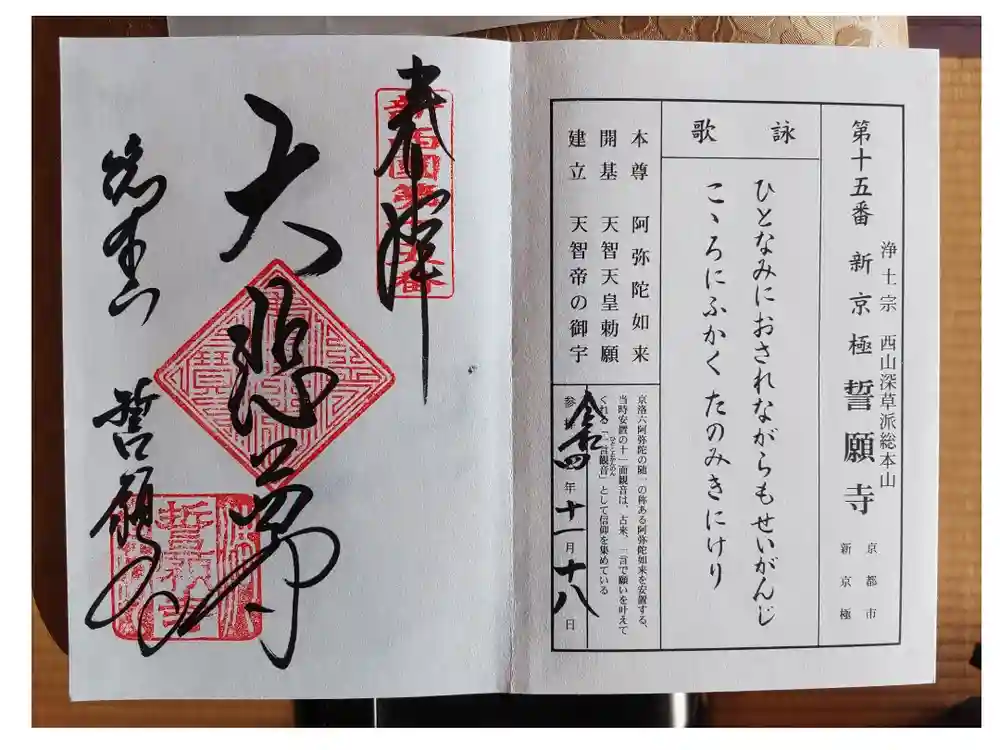 第十五番 新京極 誓願寺
浄土宗 西山深草派総本山
京都市
新京極
詠歌
ひとなみにおされながらもせいがんじ
こゝろにふかくたのみきにけり
本尊 阿弥陀如来
開基 天智天皇勅願
建立 天智帝の御宇
京洛六阿弥陀の随一の称ある阿弥陀如来を安置する、
当時安置の十一面観音は、古来、一言で願いを叶えて
くれる「一言観音」として信仰を集めている
ひとことかんのん
参 令和四年十一月十八日
奉拝
新西国第十五番
大悲尊
総本山 誓願寺
誓願寺